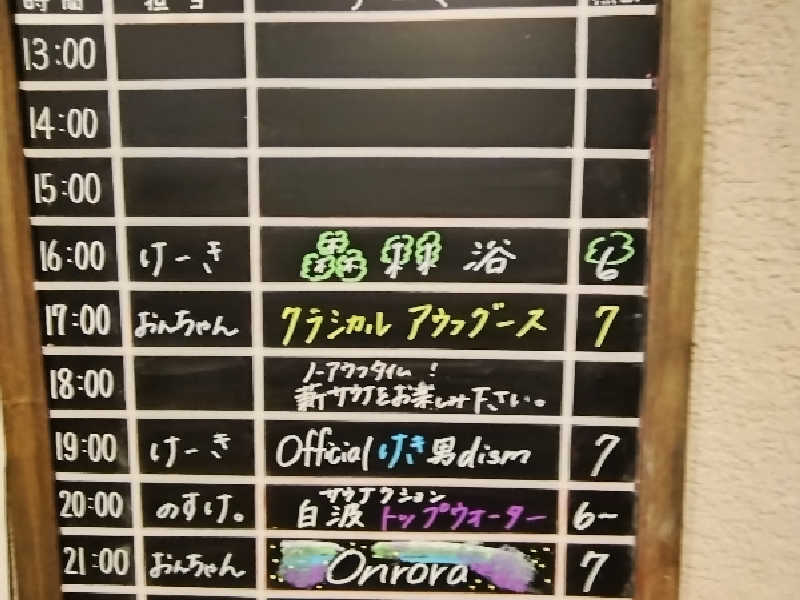 時間 担当 テーマ
13:00
14:00
15:00
16:00 けーき 森林浴 6
17:00 おんちゃん クラシカル アウフグース 7
18:00 ノーアウフタイム!
薪サウナをお楽しみ下さい。
19:00 けーき Officialけき男dism 7
サウナクション
20:00 のすけ。 白波 トップウォーター 6~
21:00 おんちゃん Onrora 7